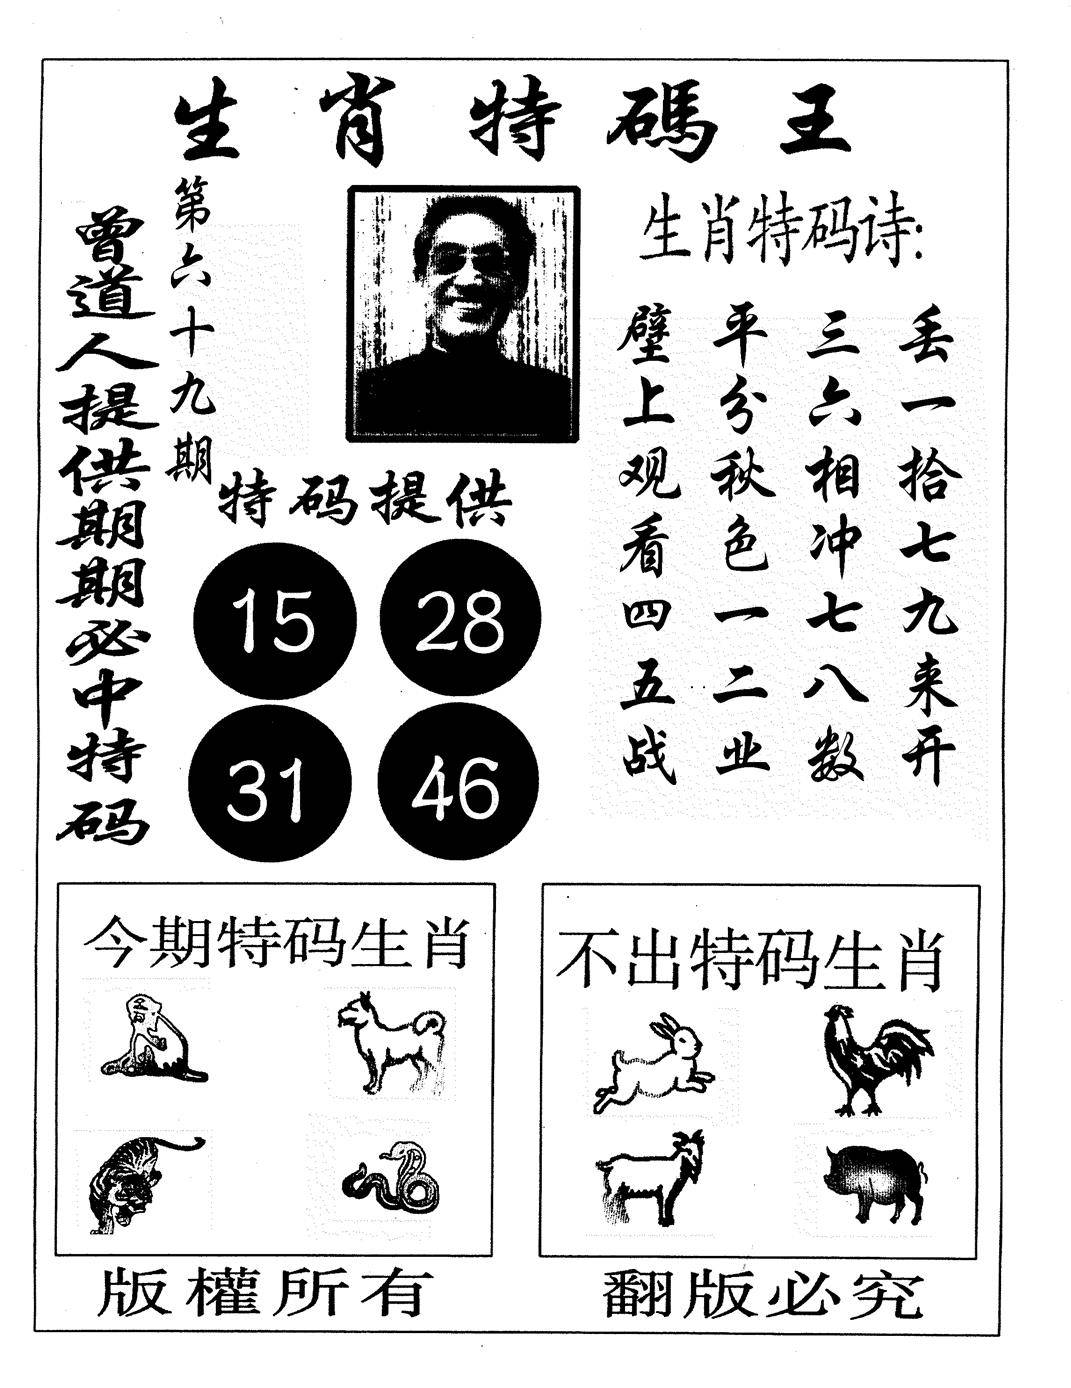 生肖特碼王
第六十九期
曾道人提供期期必中特码
特码提供
15 28
31 46
生肖特码诗:
丢一拾七九来开
三六相冲七八数
平分秋色一二业
壁上观看四五战
今期特码生肖
不出特码生肖
版權所有
翻版必究